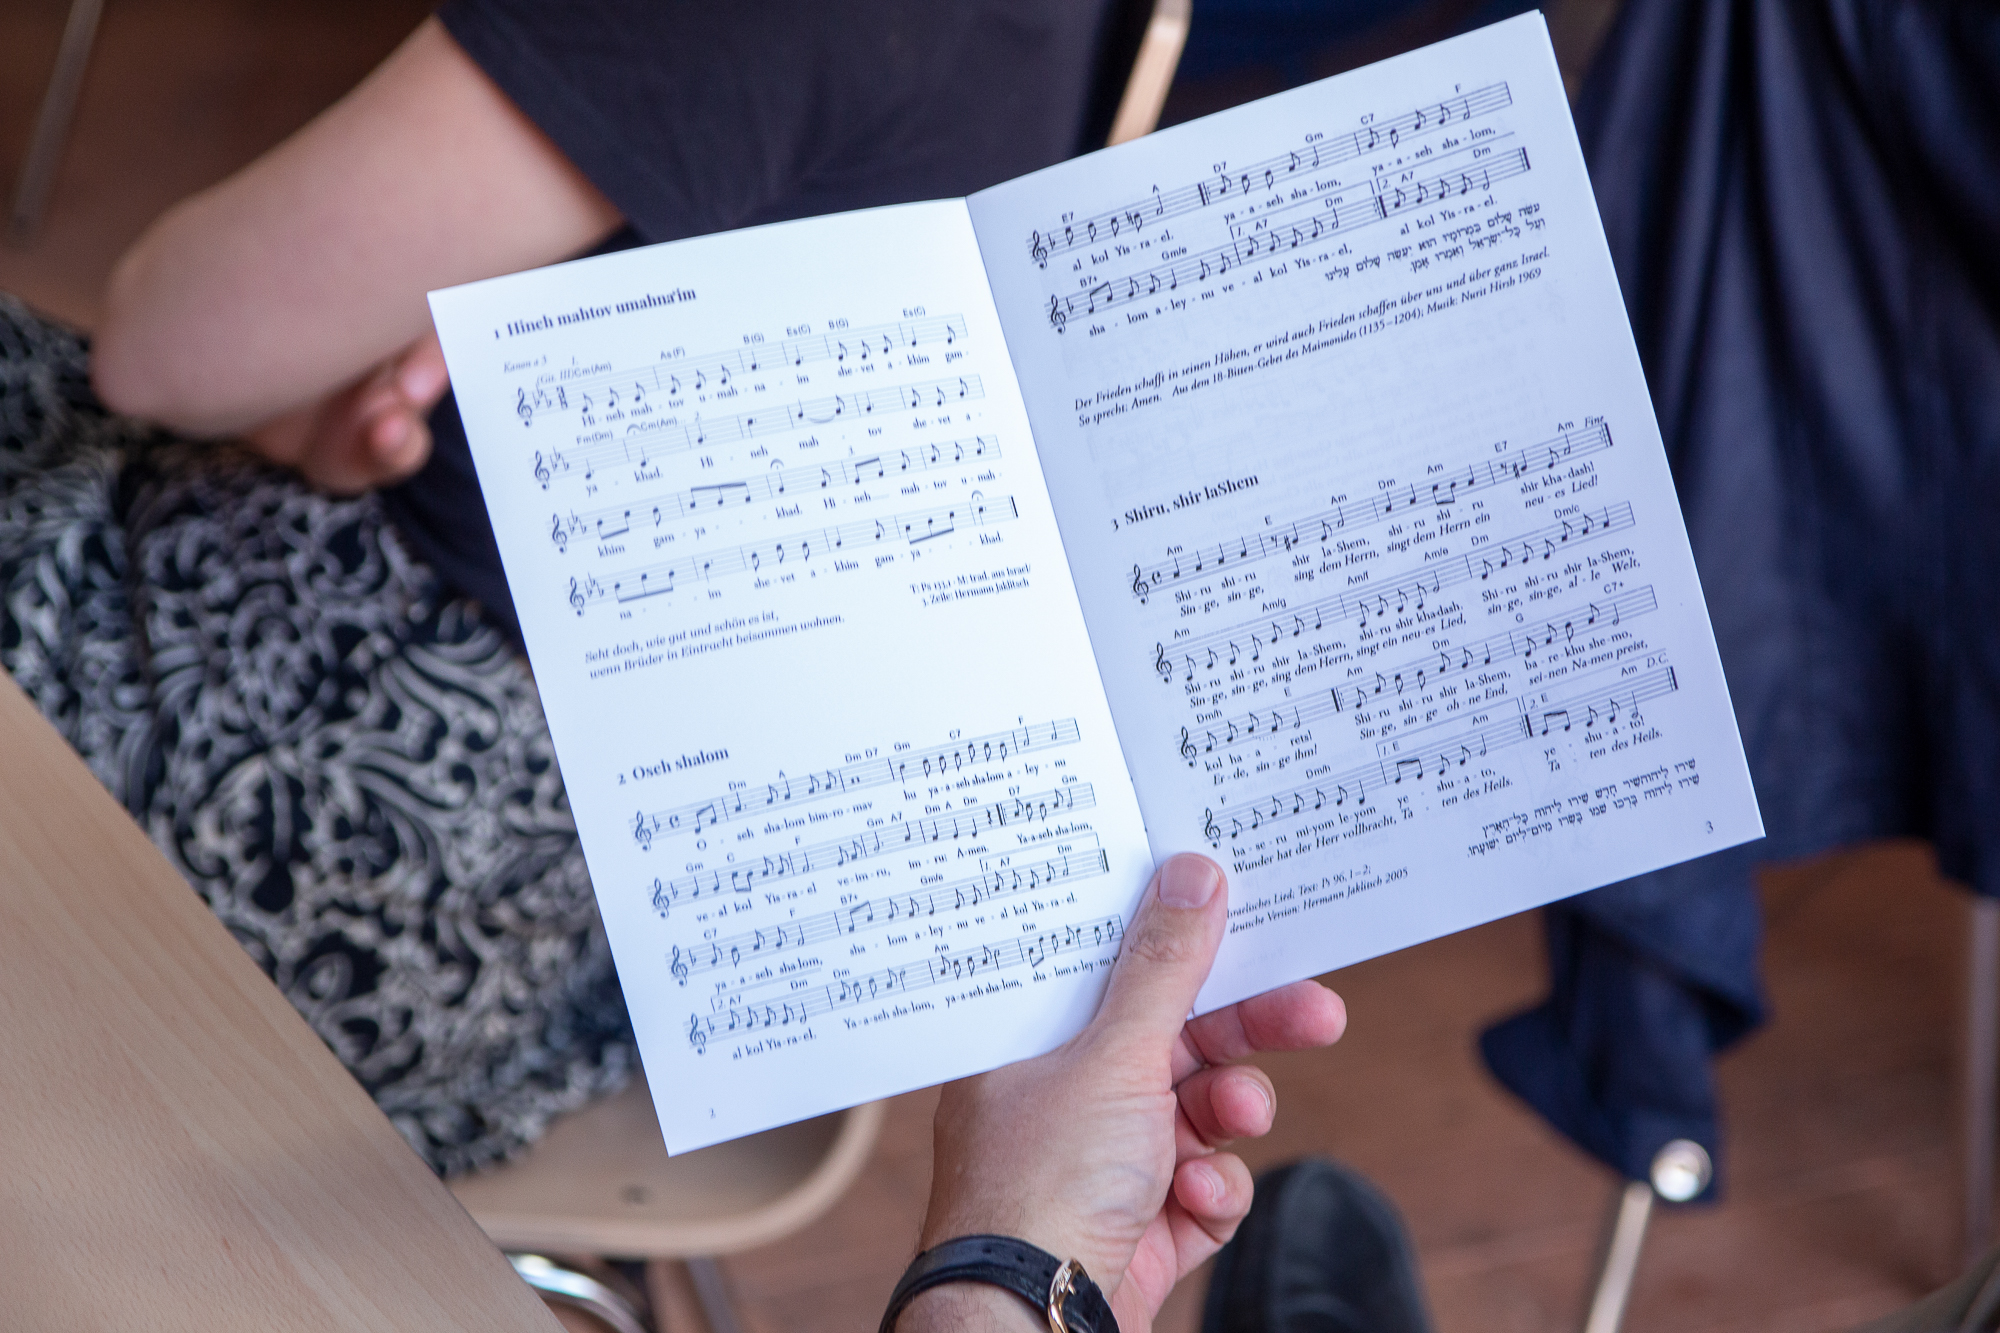 1 Hineh mahtov umahna'im
Kanon a 3 1.
(Git. III) Cm(Am) As(F) B(G) Es(C) B(G) Es(C)
Hi - neh mah - tov u - mah - na - im she - vet a - khim gam -
Fm(Dm) Cm(Am) 2.
ya - khad. Hi - neh mah - tov she - vet a -
3
khim gam - ya - khad. Hi - neh mah - tov u - mah -
na - im she - vet a - khim gam - ya - khad.
T: Ps 133,1 · M: trad. aus Israel/
3. Zeile: Hermann Jaklitsch
Seht doch, wie gut und schön es ist,
wenn Brüder in Eintracht beisammen wohnen.
2 Oseh shalom
Dm A Dm D7 Gm C7 F
O - seh sha-lom bim-ro-mav hu ya-a-seh shalom a-ley-nu
Gm C F Gm A7 Dm A Dm D7 Gm
ve-al kol Yis-ra-el ve-im-ru, im-ru: A-men. Ya-a-seh sha-lom,
C7 F B7+ Gm/e 1. A7 Dm
ya-a-seh sha-lom, sha-lom a-ley-nu ve-al kol Yis-ra-el.
2. A7 Dm Dm Am Dm
al kol Yis-ra-el. Ya-a-seh sha-lom, ya-a-seh sha-lom, sha-lom a-ley-nu
2
E7 A D7 Gm C7 F
al kol Yis-ra-el. ya-a-seh sha-lom, ya-a-seh sha-lom,
B7+ Gm/e 1. A7 Dm 2. A7 Dm
sha - lom a-ley - nu ve - al kol Yis-ra-el, al kol Yis-ra-el.
עֹשֶׂה שָׁלוֹם בִּמְרוֹמָיו הוּא יַעֲשֶׂה שָׁלוֹם עָלֵינוּ
וְעַל כָּל־יִשְׂרָאֵל וְאִמְרוּ אָמֵן.
Der Frieden schafft in seinen Höhen, er wird auch Frieden schaffen über uns und über ganz Israel.
So sprecht: Amen. Aus dem 18-Bitten-Gebet des Maimonides (1135–1204); Musik: Nurit Hirsh 1969
3 Shiru, shir laShem
Am E Am Dm Am E7 Am Fine
Shi - ru shi - ru shir la-Shem, shi - ru shi - ru shir kha-dash!
Sin - ge, sin - ge, sing dem Herrn, singt dem Herrn ein neu - es Lied!
Am Am/g Am/f Am/e Dm Dm/c
Shi - ru shi - ru shir la-Shem, shi-ru shir kha-dash, Shi - ru shi - ru shir la-Shem,
Sin-ge, sin-ge, sing dem Herrn, singt ein neu-es Lied, sin-ge, sin-ge, al - le Welt,
Dm/h E Am Dm G C7+
kol ha - a - rets! Shi - ru shi - ru shir la-Shem, ba - re - khu she - mo,
Er - de, sin-ge ihm! Sin-ge, sin-ge oh-ne End, sei-nen Na-men preist,
F Dm/h 1. E Am 2. E Am D.C.
ba - se - ru mi-yom le-yom ye - shu - a - to, ye - shu - a - to!
Wunder hat der Herr vollbracht, Ta - ten des Heils. Ta - ten des Heils.
שִׁירוּ לַיהוה שִׁיר חָדָשׁ שִׁירוּ לַיהוה כָּל־הָאָרֶץ
שִׁירוּ לַיהוה בָּרְכוּ שְׁמוֹ בַּשְּׂרוּ מִיּוֹם־לְיוֹם יְשׁוּעָתוֹ.
Israelisches Lied; Text: Ps 96, 1–2;
deutsche Version: Hermann Jaklitsch 2005
3